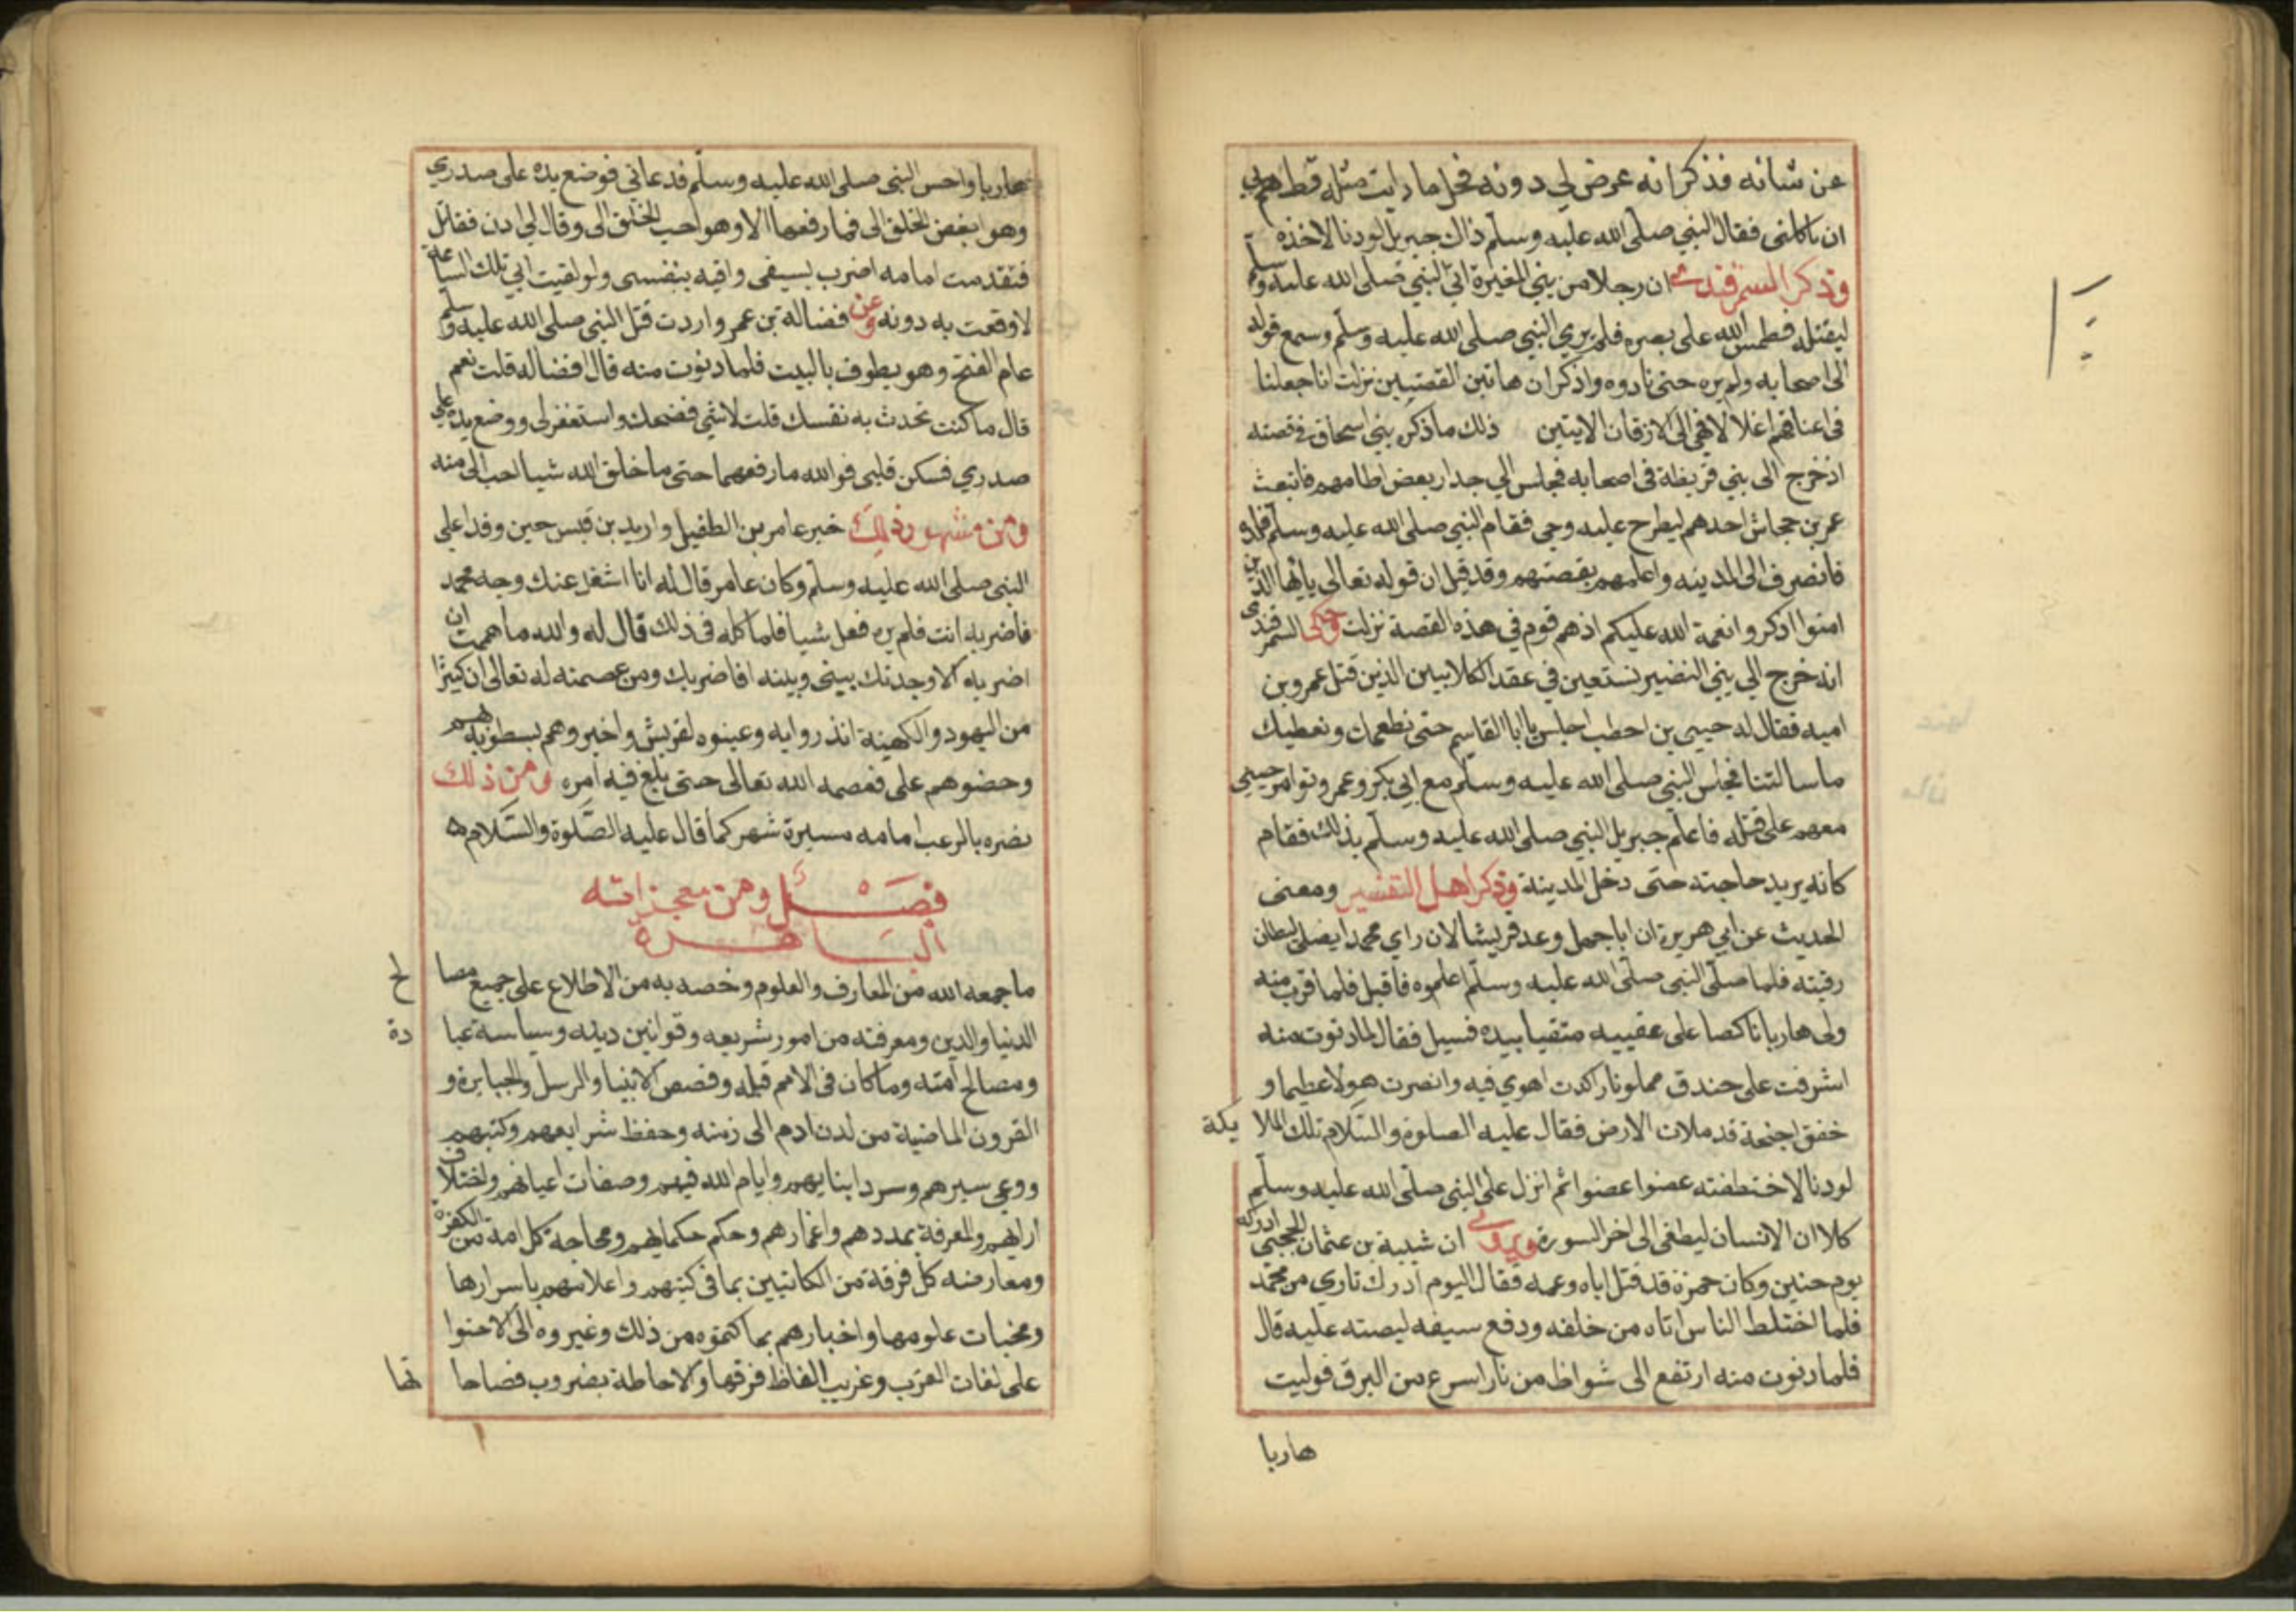 عن شانه فذكر انه عرض لي دونه فحل ما رايت مثله قط هم بي
ان ياكلني فقال النبي صلى الله عليه وسلم ذاك جبريل لو دنا لاخذه
وذكر السمرقندي ان رجلا من بني المغيرة اتى النبي صلى الله عليه وسلم
ليقتله فطمس الله على بصره فلم يرى النبي صلى الله عليه وسلم وسمع قوله
الى اصحابه ولم يره حتى نادوه واذكر ان هاتين القصتين نزلت انا جعلنا
في اعناقهم اغلالا فهي الى الاذقان الايتين ذلك ما ذكر بني اسحاق في قصته
اذ خرج الى بني قريظة في اصحابه فجلس الي جدار بعض اطامهم فانبعث
عمر بن جحاش احدهم ليطرح عليه رحى فقام النبي صلى الله عليه وسلم
فانصرف الى المدينه واعلمهم بقصتهم وقد قيل ان قوله تعالى يايها الذين
امنوا اذكروا نعمة الله عليكم اذ هم قوم في هذه القصة نزلت وحكى السمرقندي
انه خرج الي بني النضير نستعين في عقد الكلابيين الذين قتل عمرو بن
اميه فقال له حيي بن اخطب اجلس يا ابا القاسم حتى نطعمك ونعطيك
ما سالتنا فجلس النبي صلى الله عليه وسلم مع ابي بكر وعمر وتوامر حيي
معهم على قتله فاعلم جبريل النبي صلى الله عليه وسلم بذلك فقام
كانه يريد حاجته حتى دخل المدينة وذكر اهل التفسير ومعنى
الحديث عن ابي هريرة ان ابا جهل وعد قريشا لان راي محمدا يصلى ليطان
رقبته فلما صلى النبي صلى الله عليه وسلم اعلموه فاقبل فلما قرب منه
ولى هاربا ناكصا على عقبيه متقيا بيده فسيل فقال لما دنوت منه
اشرفت على خندق مملو نار كدت اهوي فيه وانصرت هولا عظيما و
خفق اجنحة قد ملات الارض فقال عليه الصلوة والسلام تلك الملا يكة
لو دنا لاختطفته عضوا عضوا ثم انزل على النبي صلى الله عليه وسلم
كلا ان الانسان ليطغى الى اخر السورة ويروى ان شيبة بن عثمان الحجبي ادركه
يوم حنين وكان حمزة قد قتل اباه وعمه فقال اليوم ادرك ثاري من محمد
فلما اختلط الناس اتاه من خلفه ورفع سيفه ليصته عليه قال
فلما دنوت منه ارتفع الى شواظ من نار اسرع من البرق فوليت
هاربا
هاربا واحس النبي صلى الله عليه وسلم فدعاني فوضع يده على صدري
وهو ابغض الخلق الى فما رفعها الا وهو احب الخلق الى وقال لي ادن فقاتل
فتقدمت امامه اضرب بسيفي واقيه بنفسى ولو لقيت ابي تلك الساعة
لاوقعت به دونه وعن فضالة بن عمرو اردت قتل النبي صلى الله عليه وسلم
عام الفتح وهو يطوف بالبيت فلما دنوت منه قال افضالة قلت نعم
قال ما كنت تحدث به نفسك قلت لا شي فضحك واستغفر لى ووضع يده على
صدري فسكن قلبي فوالله ما رفعها حتى ما خلق الله شيا احب الى منه
ومن مشهور ذلك خبر عامر بن الطفيل واربد بن قيس حين وفدا على
النبي صلى الله عليه وسلم وكان عامر قال له انا اشغل عنك وجه محمد
فاضربه انت فلم يره فعل شيا فلما كلمه في ذلك قال له والله ما هممت ان
اضربه الا وجدتك بيني وبينه افاضربك ومن عصمته له تعالى ان كثيرا
من اليهود والكهنة انذروا به وعينوه لقريش واخبروهم بسطوته بهم
وحضوهم على فعصمه الله تعالى حتى بلغ فيه امره ومن ذلك
نصره بالرعب امامه مسيرة شهر كما قال عليه الصلوة والسلام ه
فصل ومن معجزاته
الباهرة
ما جمعه الله من المعارف والعلوم وخصه به من الاطلاع على جميع مصا لح
الدنيا والدين ومعرفته من امور شريعه وقوانين دينه وسياسة عبا دة
ومصالح امته وما كان في الامم قبله وقصص الانبيا والرسل والجبابرة و
القرون الماضية من لدن ادم الى زمنه وحفظ شرايعهم وكتبهم
ووعي سيرهم وسرد ابنايهم وايام الله فيهم وصفات اعيانهم واختلاف
ارايهم والمعرفة بمددهم واعمارهم وحكم حكمايهم ومحاجة كل امة من الكفرة
ومعارضه كل فرقة من الكتابيين بما في كتبهم واعلامهم باسرارها
ومخبات علومها واخبارهم بما كتموه من ذلك وغيروه الى الاحتوا
على لغات العرب وغريب الفاظ فرقها والاحاطة بضروب فصاحا تها